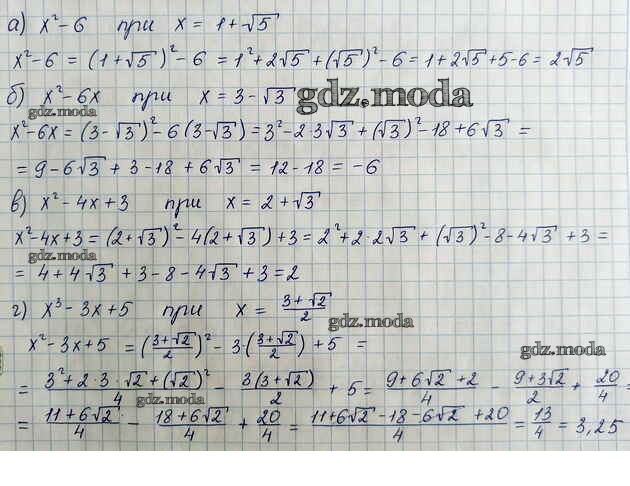 а) x² - 6 при x = 1 + √5
x² - 6 = (1 + √5)² - 6 = 1² + 2√5 + (√5)² - 6 = 1 + 2√5 + 5 - 6 = 2√5
б) x² - 6x при x = 3 - √3 gdz.moda
gdz.moda
x² - 6x = (3 - √3)² - 6(3 - √3) = 3² - 2·3√3 + (√3)² - 18 + 6√3 =
= 9 - 6√3 + 3 - 18 + 6√3 = 12 - 18 = -6
в) x² - 4x + 3 при x = 2 + √3
x² - 4x + 3 = (2 + √3)² - 4(2 + √3) + 3 = 2² + 2·2√3 + (√3)² - 8 - 4√3 + 3 =
gdz.moda
= 4 + 4√3 + 3 - 8 - 4√3 + 3 = 2
г) x³ - 3x + 5 при x = (3 + √2)/2
gdz.moda
x² - 3x + 5 = ((3 + √2)/2)² - 3((3 + √2)/2) + 5 =
gdz.moda
= (3² + 2·3·√2 + (√2)²)/4 - 3(3 + √2)/2 + 5 = (9 + 6√2 + 2)/4 - (9 + 3√2)/2 + 20/4 =
gdz.moda
= (11 + 6√2)/4 - (18 + 6√2)/4 + 20/4 = (11 + 6√2 - 18 - 6√2 + 20)/4 = 13/4 = 3,25